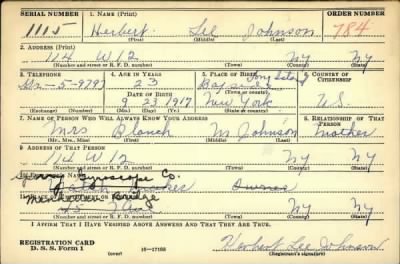 SERIAL NUMBER 1. NAME (Print) ORDER NUMBER
1115 Herbert Lee Johnson 784
(First) (Middle) (Last)
2. ADDRESS (Print)
114 W 12 NY NY
(Number and street or R. F. D. number) (Town) (County) (State)
3. TELEPHONE 4. AGE IN YEARS 5. PLACE OF BIRTH 6. COUNTRY OF CITIZENSHIP
5-9793 23 Bayside Long Island
DATE OF BIRTH (Town or county)
9 23 1917 New York U.S.
(Exchange) (Number) (Mo.) (Day) (Yr.) (State or country)
7. NAME OF PERSON WHO WILL ALWAYS KNOW YOUR ADDRESS 8. RELATIONSHIP OF THAT PERSON
Mrs Blanch M Johnson Mother
(Mr., Mrs., Miss) (First) (Middle) (Last)
9. ADDRESS OF THAT PERSON
114 W 12 NY NY
(Number and street or R. F. D. number) (Town) (County) (State)
Gyroscope Co.
Bridge
I AFFIRM THAT I HAVE VERIFIED ABOVE ANSWERS AND THAT THEY ARE TRUE.
REGISTRATION CARD
D. S. S. Form 1 (over) 16-17105 Herbert Lee Johnson
(Registrant's signature)